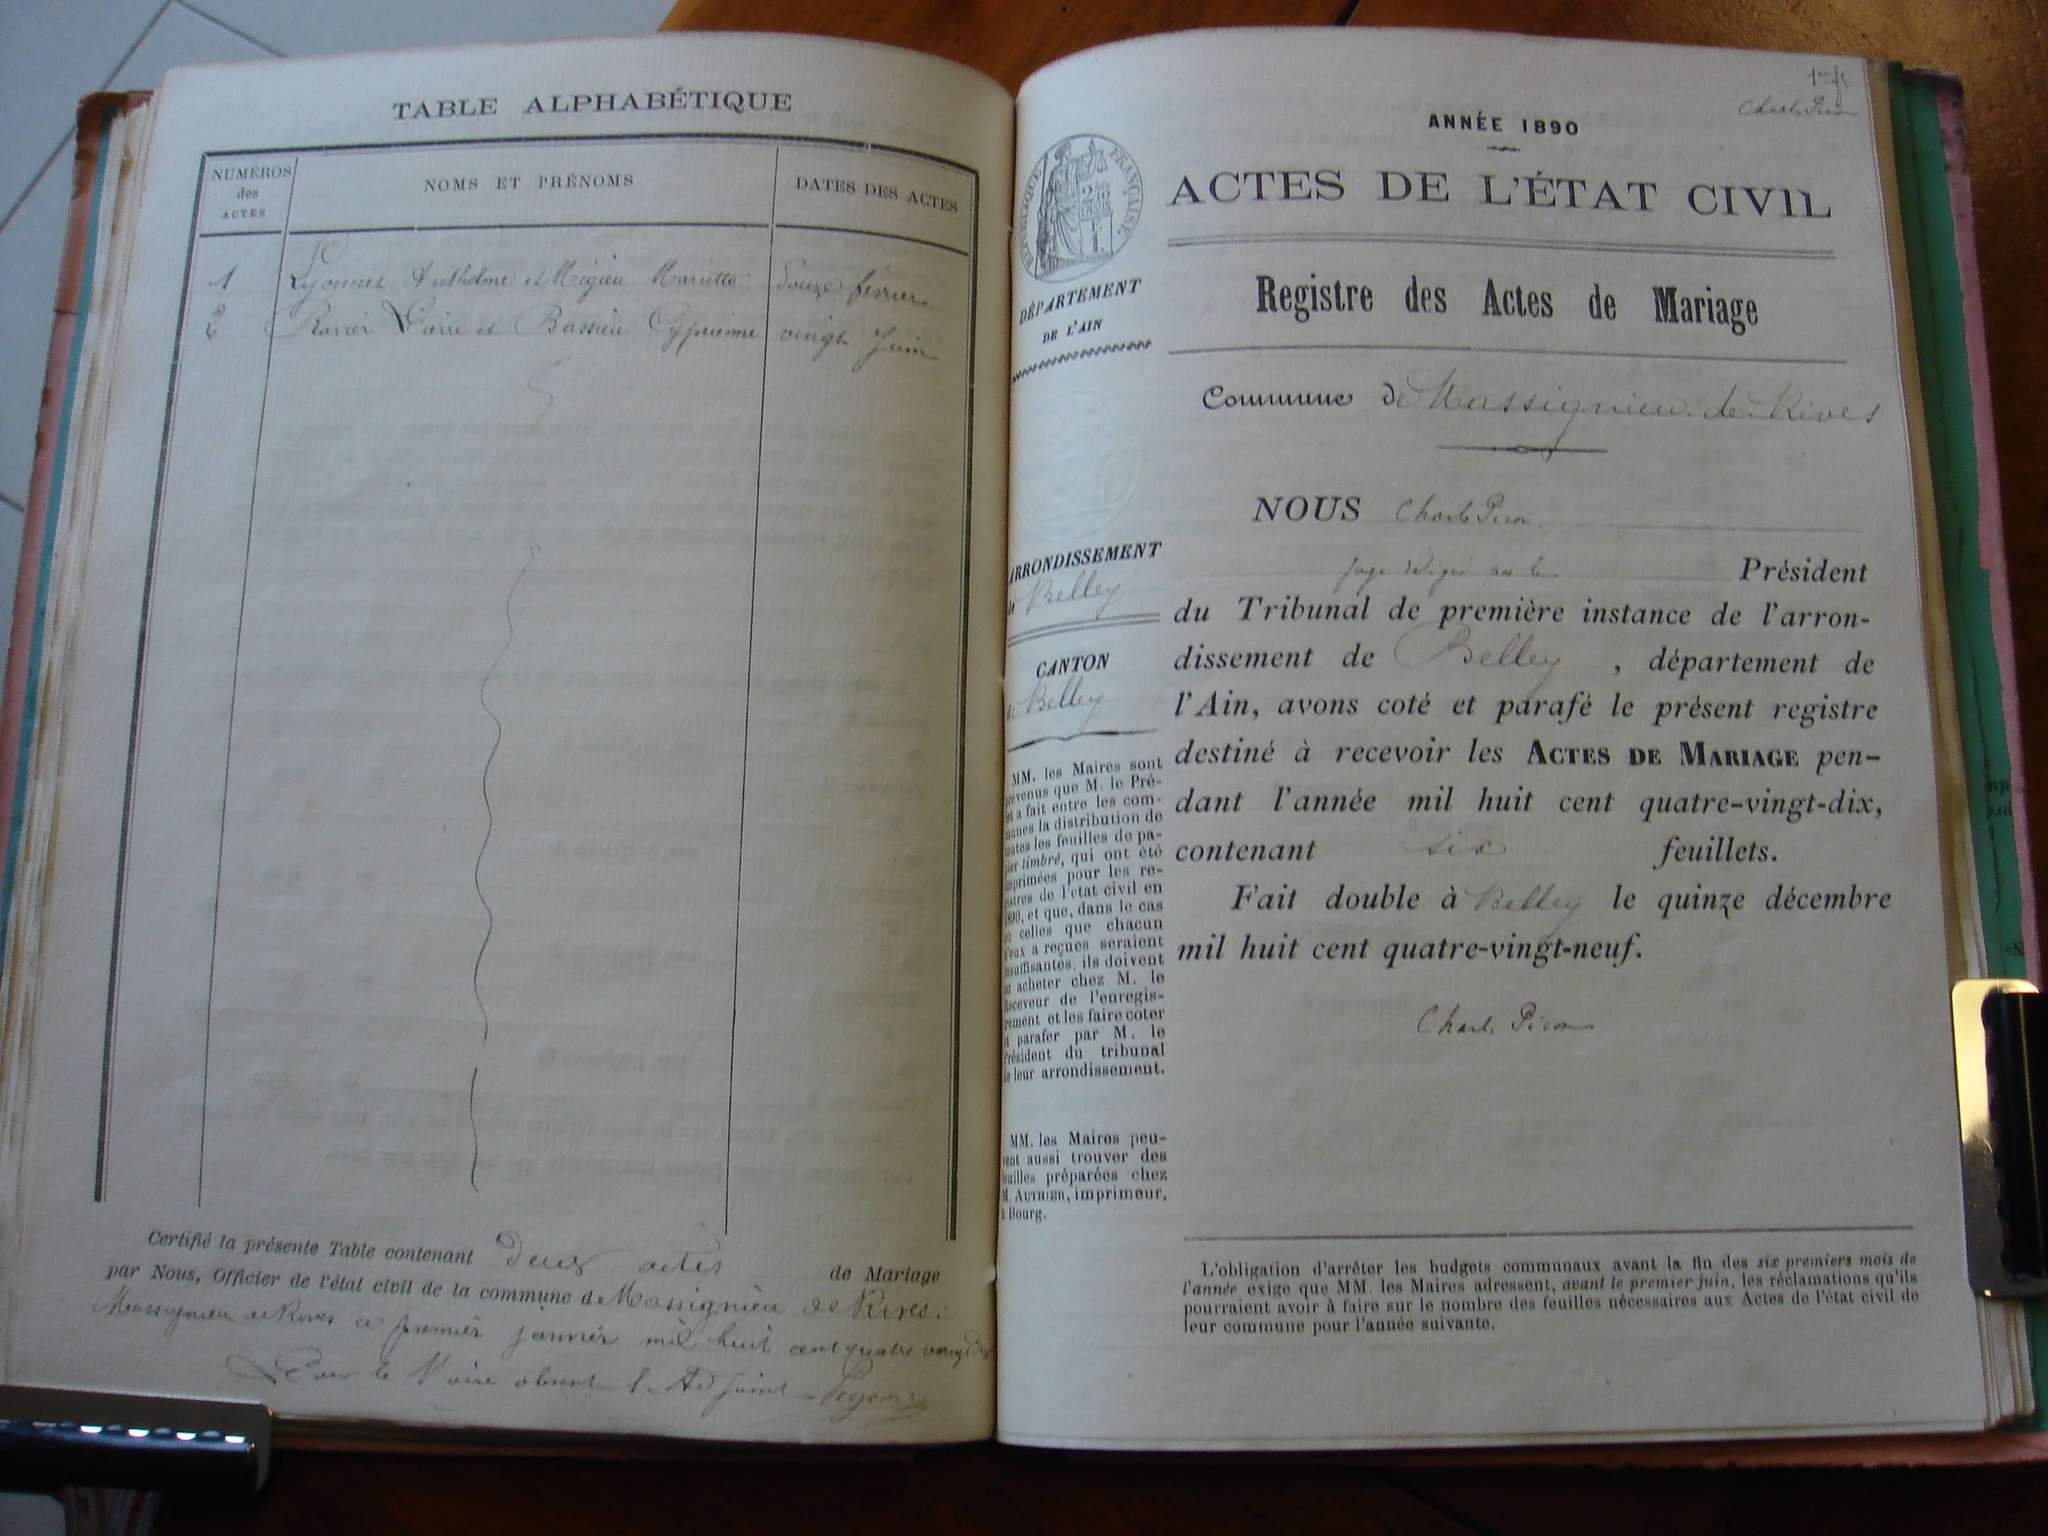 TABLE ALPHABÉTIQUE
NUMÉROS
des
ACTES
NOMS ET PRÉNOMS
DATES DES ACTES
1 Lyonnet Anthelme et Mégieu Mariette Douze février
2 Ravier Pierre et Bassieu Cyprienne vingt Juin
Certifié la présente Table contenant Deux actes de Mariage
par Nous, Officier de l'état civil de la commune de Massignieu de Rives.
Massignieu de Rives ce premier janvier mil huit cent quatre vingt dix
Pour le Maire absent l'Adjoint
1er ft
Charles Picon
ANNÉE 1890
ACTES DE L'ÉTAT CIVIL
RÉPUBLIQUE FRANÇAISE.
DÉPARTEMENT
DE L'AIN
Registre des Actes de Mariage
Commune de Massignieu de Rives
NOUS Charles Picon
juge délégué par le Président
du Tribunal de première instance de l'arron-
dissement de Belley, département de
l'Ain, avons coté et parafé le présent registre
destiné à recevoir les ACTES DE MARIAGE pen-
dant l'année mil huit cent quatre-vingt-dix,
contenant six feuillets.
Fait double à Belley le quinze décembre
mil huit cent quatre-vingt-neuf.
Charles Picon
ARRONDISSEMENT
de Belley
CANTON
de Belley
MM. les Maires sont
prévenus que M. le Pré-
fet a fait entre les com-
munes la distribution de
toutes les feuilles de pa-
pier timbré, qui ont été
imprimées pour les re-
gistres de l'état civil en
1890, et que, dans le cas
où celles que chacun
d'eux a reçues seraient
insuffisantes, ils doivent
en acheter chez M. le
Receveur de l'enregis-
trement et les faire coter
et parafer par M. le
Président du tribunal
de leur arrondissement.
MM. les Maires peu-
vent aussi trouver des
feuilles préparées chez
M. AUTHIER, imprimeur,
à Bourg.
L'obligation d'arrêter les budgets communaux avant la fin des six premiers mois de
l'année exige que MM. les Maires adressent, avant le premier juin, les réclamations qu'ils
pourraient avoir à faire sur le nombre des feuilles nécessaires aux Actes de l'état civil de
leur commune pour l'année suivante.